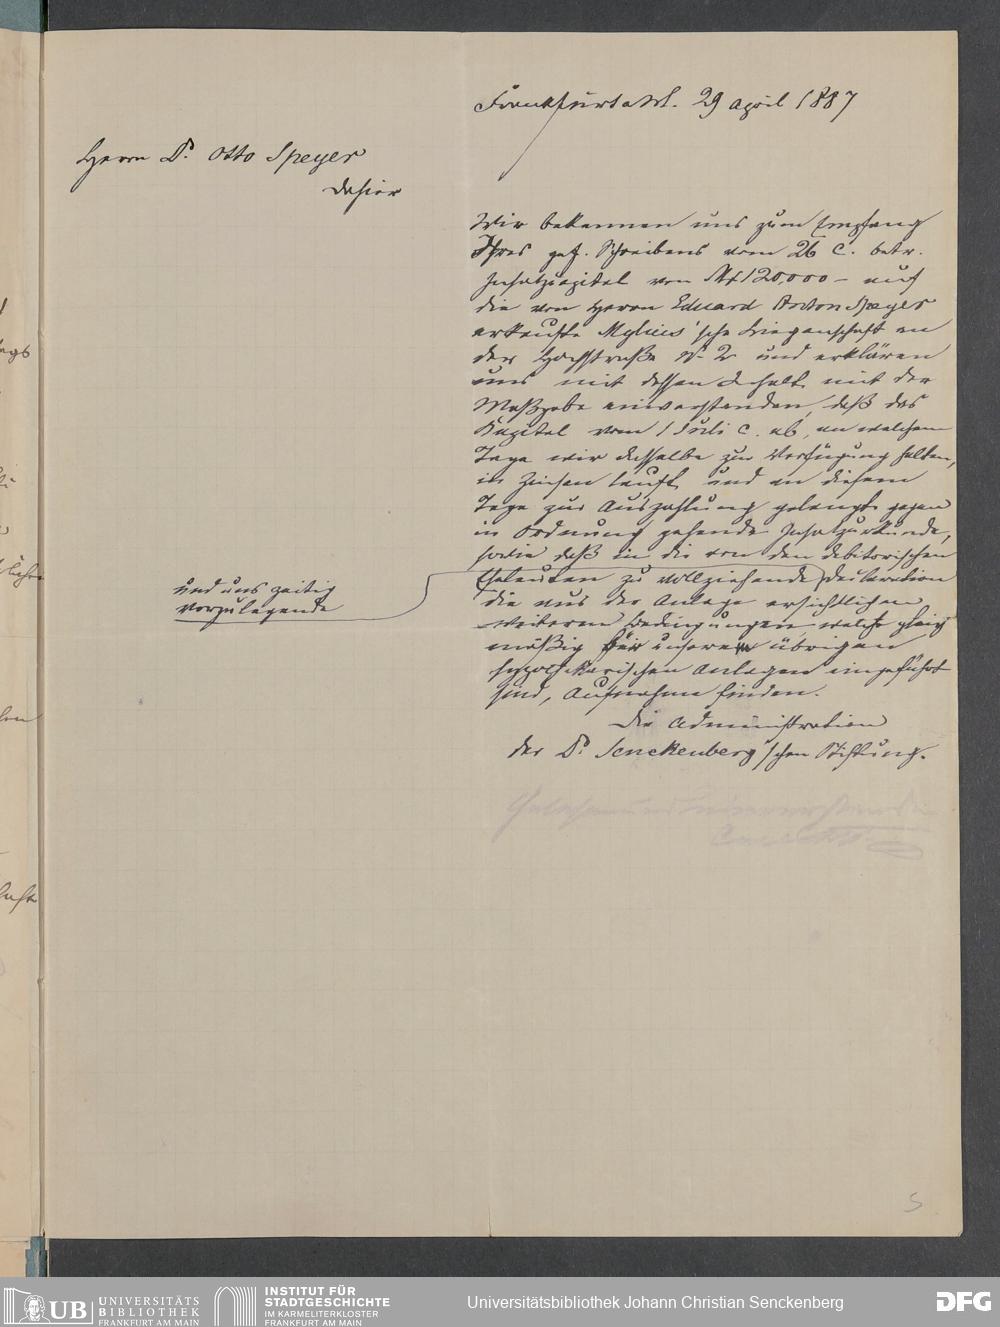 Frankfurt a M. 29 April 1887
Herrn Dr. Otto Speyer
dahier
Wir bekennen uns zum Empfang
Ihres gef. Schreibens vom 26 c. betr.
Insatzcapital von M 120,000 – auf
die von Herrn Eduard Anton Speyer
erkaufte Mylius'sche Liegenschaft an
der Hochstraße No 2 und erklären
uns mit dessen Inhalt mit der
Maßgabe einverstanden, daß das
Kapital vom 1 Juli c. ab, an welchem
Tage wir dasselbe zur Verfügung halten,
in Zinsen lauft und an diesem
Tage zur Auszahlung gelangt gegen
in Ordnung gehende Insatzurkunde,
sowie daß in die von den debitorischen
Eheleuten zu vollziehende Declaration
und uns zeitig
vorzulegende
die aus der Anlage ersichtlichen
weiteren Bedingungen, welche gleich
mäßig für unsere übrigen
hypothekarischen Anlagen eingeführt
sind, Aufnahme finden.
Die Administration
der Dr. Senckenberg'schen Stiftung.
5
UB UNIVERSITÄTS
BIBLIOTHEK
FRANKFURT AM MAIN
INSTITUT FÜR
STADTGESCHICHTE
IM KARMELITERKLOSTER
FRANKFURT AM MAIN
Universitätsbibliothek Johann Christian Senckenberg
DFG